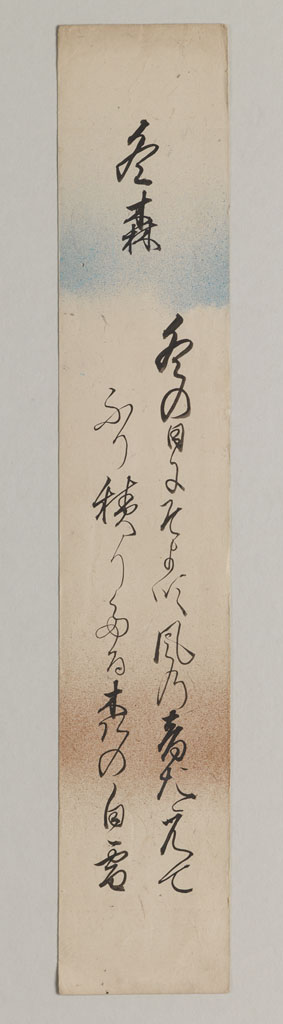 冬森
冬の日にそよ吹風乃音たえて
ふり積りたる森の白雪